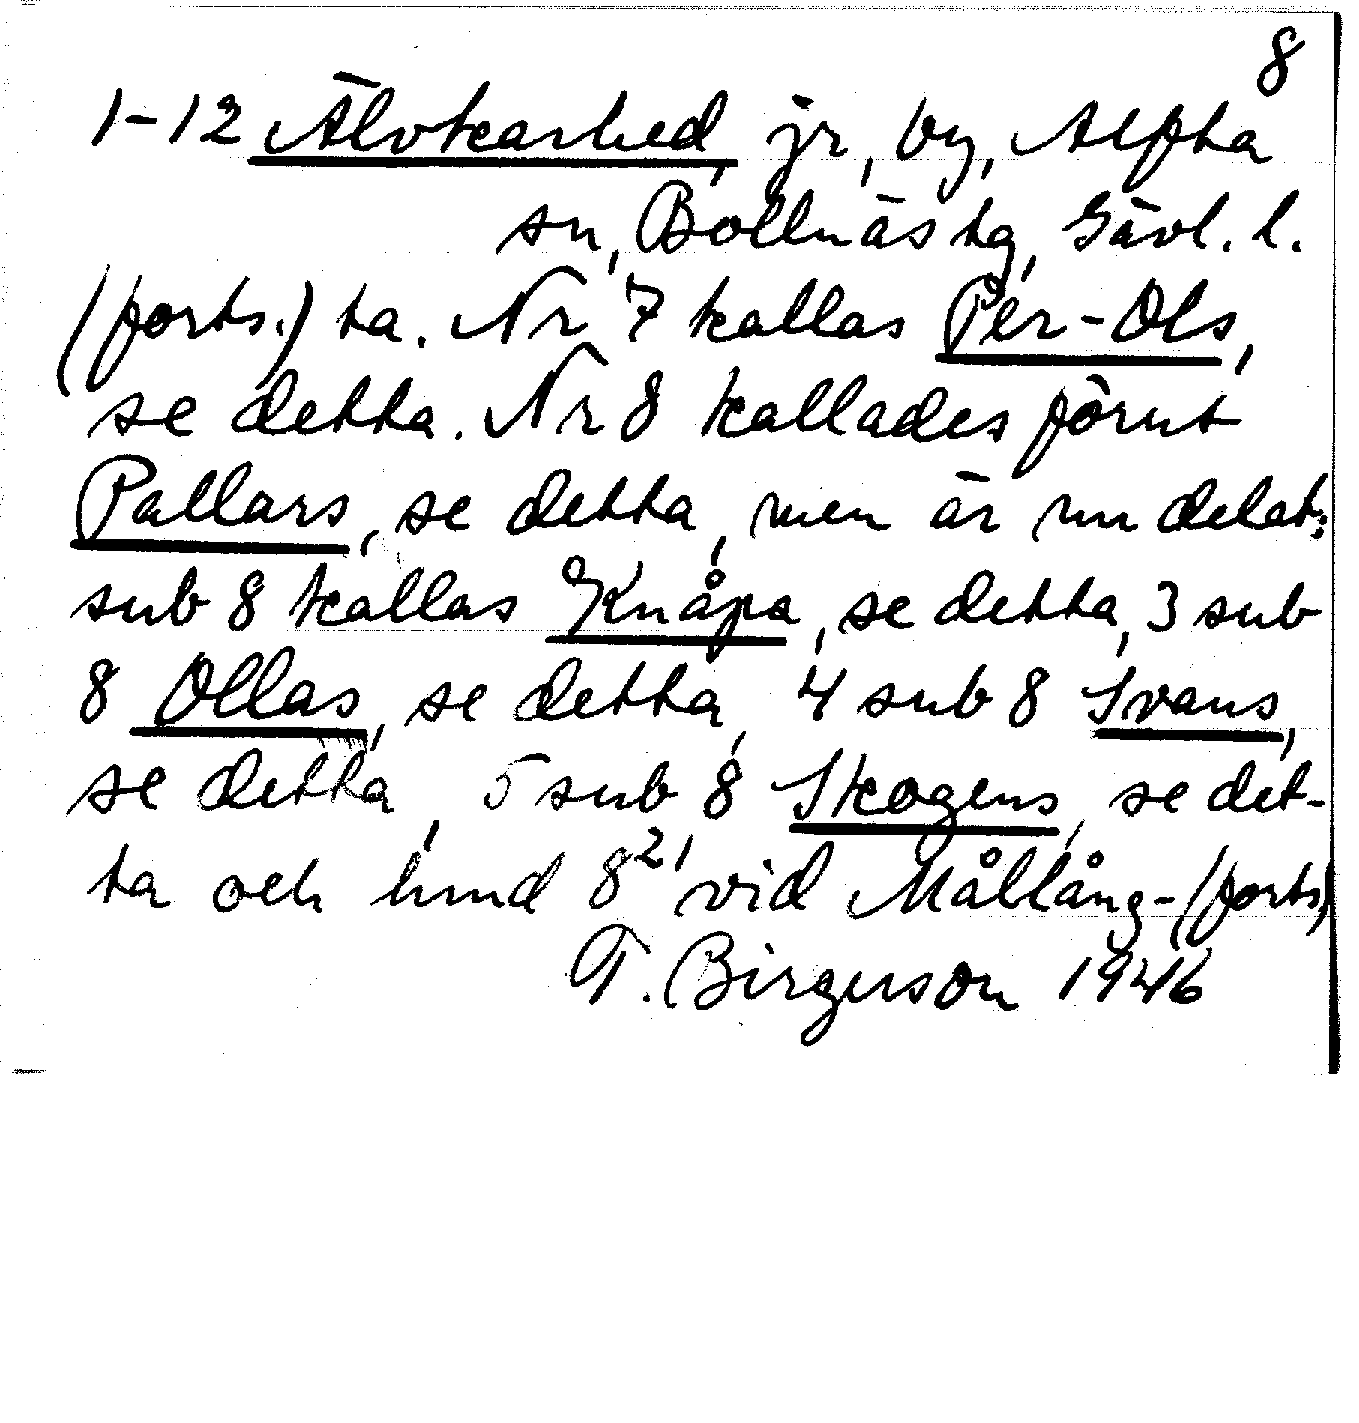 8
1-12 Älvkarhed, jr, by, Alfta
sn, Bollnäs tg, Gävl. l.
(forts.) ta. Nr 7 kallas Per-Ols,
se detta. Nr 8 kallades förut
Pallars, se detta, men är nu delat:
sub 8 kallas Knåpa, se detta, 3 sub
8 Ollas, se detta, 4 sub 8 Svans,
se detta, 5 sub 8 Skogens, se det-
ta och lund 8²¹, vid Mållång-(forts)
T. Birgerson 1946